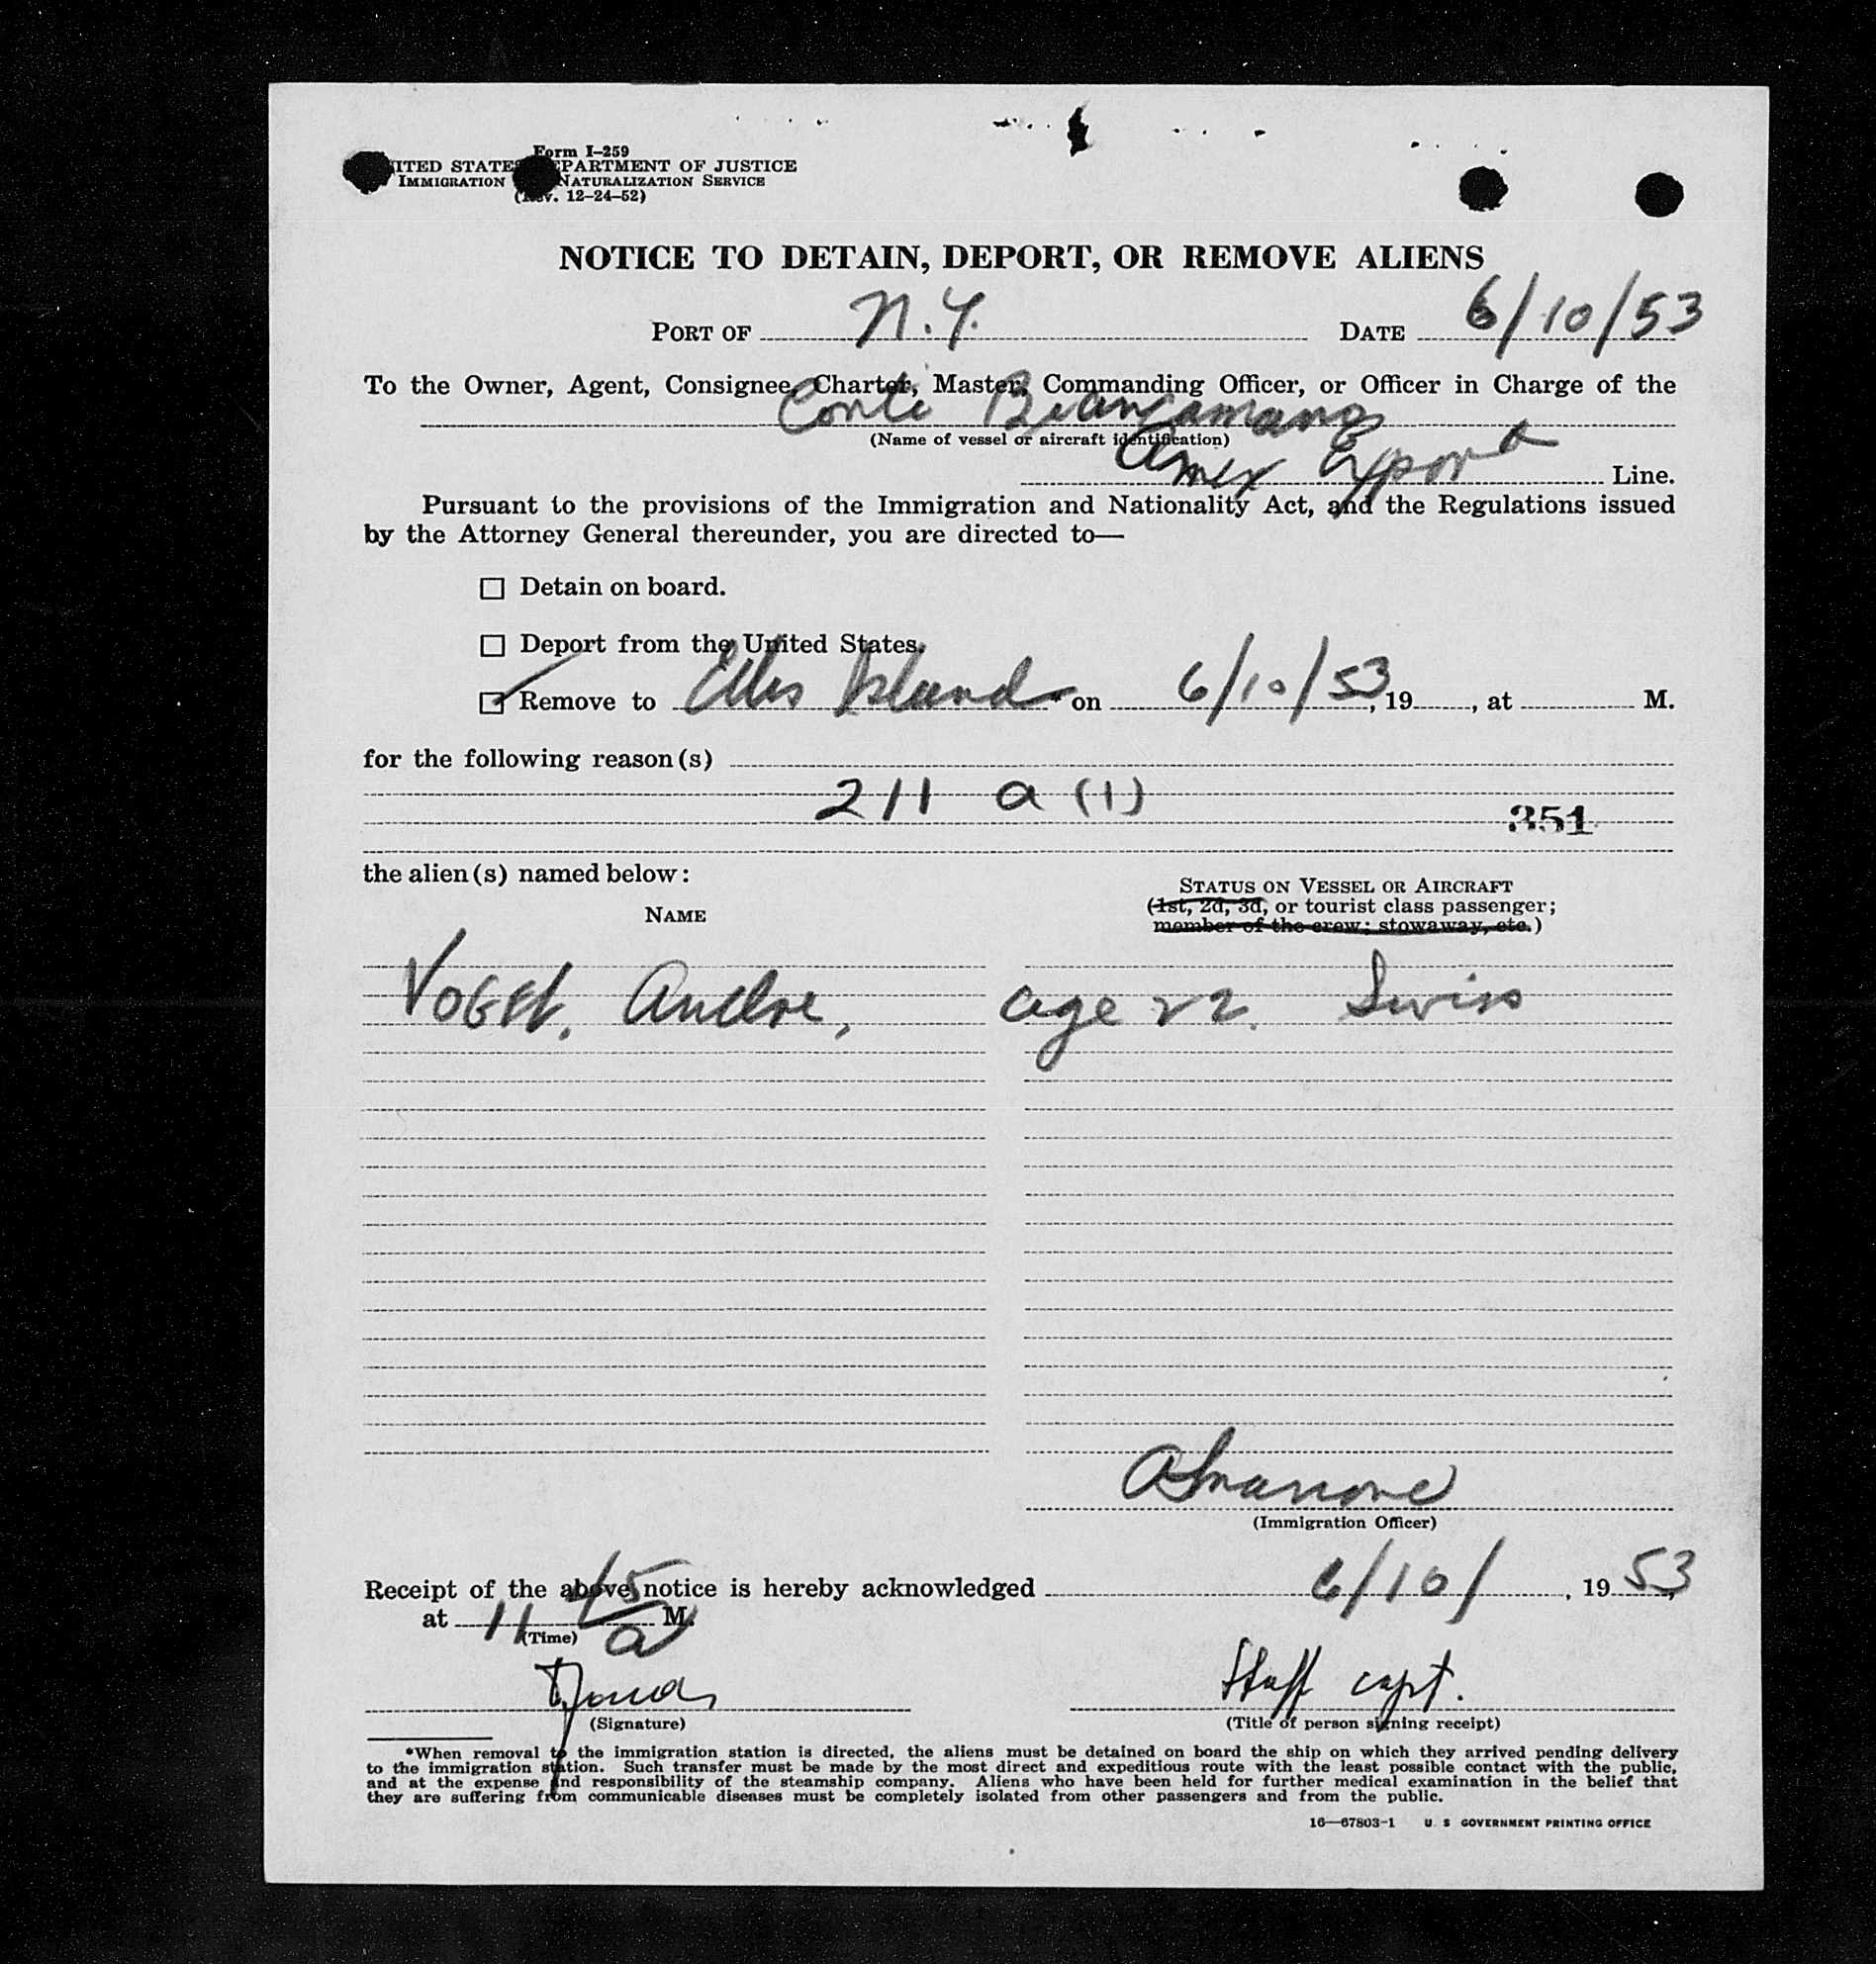 Form I-259
ITED STATE PARTMENT OF JUSTICE
IMMIGRATION NATURALIZATION SERVICE
(Rev. 12-24-52)
NOTICE TO DETAIN, DEPORT, OR REMOVE ALIENS
PORT OF N.Y. DATE 6/10/53
To the Owner, Agent, Consignee, Charter, Master, Commanding Officer, or Officer in Charge of the
Conte Biancamano
(Name of vessel or aircraft identification)
Amer Export Line.
Pursuant to the provisions of the Immigration and Nationality Act, and the Regulations issued
by the Attorney General thereunder, you are directed to—
Detain on board.
Deport from the United States.
Remove to Ellis Island * on 6/10/53, 19, at M.
for the following reason(s)
211 a (1)
351
the alien(s) named below:
STATUS ON VESSEL OR AIRCRAFT
NAME (1st, 2d, 3d, or tourist class passenger;
member of the crew; stowaway, etc.)
VOGEL, Andre, age 22. Swiss
(Immigration Officer)
Receipt of the above notice is hereby acknowledged 6/10/, 19 53,
at 11 45 a M.
(Time)
Staff capt.
(Signature) (Title of person signing receipt)
*When removal to the immigration station is directed, the aliens must be detained on board the ship on which they arrived pending delivery
to the immigration station. Such transfer must be made by the most direct and expeditious route with the least possible contact with the public,
and at the expense and responsibility of the steamship company. Aliens who have been held for further medical examination in the belief that
they are suffering from communicable diseases must be completely isolated from other passengers and from the public.
16—67803-1 U. S. GOVERNMENT PRINTING OFFICE